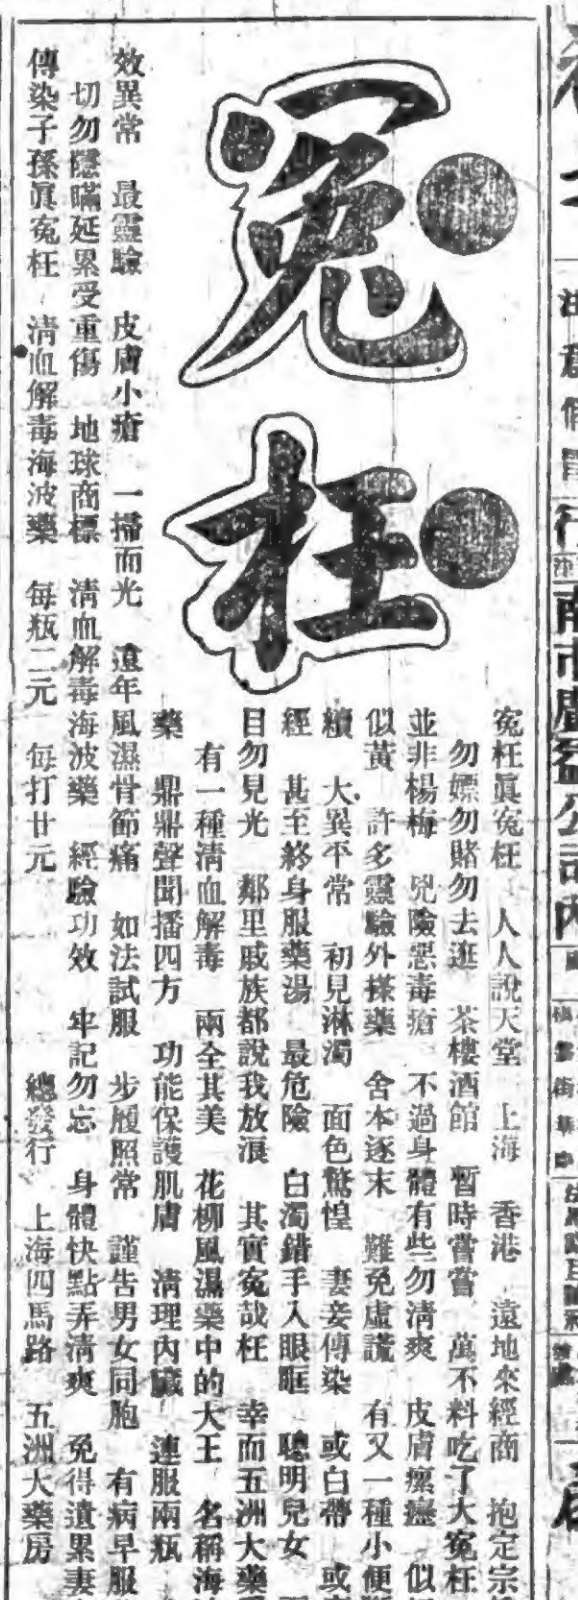 冤枉
冤枉眞冤枉　人人說天堂　上海　香港　遠地來經商　抱定宗
勿嫖勿賭勿去逛　茶樓酒館　暫時嘗嘗　萬不料吃了大冤枉
並非楊梅　兇險惡毒瘡　不過身體有些勿清爽　皮膚瘰癧　似
似黃　許多靈驗外搽藥　舍本逐末　難免虛謊　有又一種小便
續　大異平常　初見淋濁　面色驚惶　妻妾傳染　或白帶　或
經　甚至終身服藥湯　最危險　白濁錯手入眼眶　聰明兒女
目勿見光　鄰里戚族都說我放浪　其實冤哉枉　幸而五洲大藥
有一種清血解毒　兩全其美　花柳風濕藥中的大王　名稱海
藥　鼎鼎聲聞播四方　功能保護肌膚　清理內臟　連服兩瓶
效異常　最靈驗　皮膚小瘡　一掃而光　遠年風濕骨節痛　如法試服　步履照常　謹告男女同胞　有病早服
切勿隱瞞延累受重傷　地球商標　清血解毒海波藥　經驗功效　牢記勿忘　身體快點弄清爽　免得遺累妻
傳染子孫眞冤枉　清血解毒海波藥　每瓶二元　每打廿元　總發行　上海四馬路　五洲大藥房